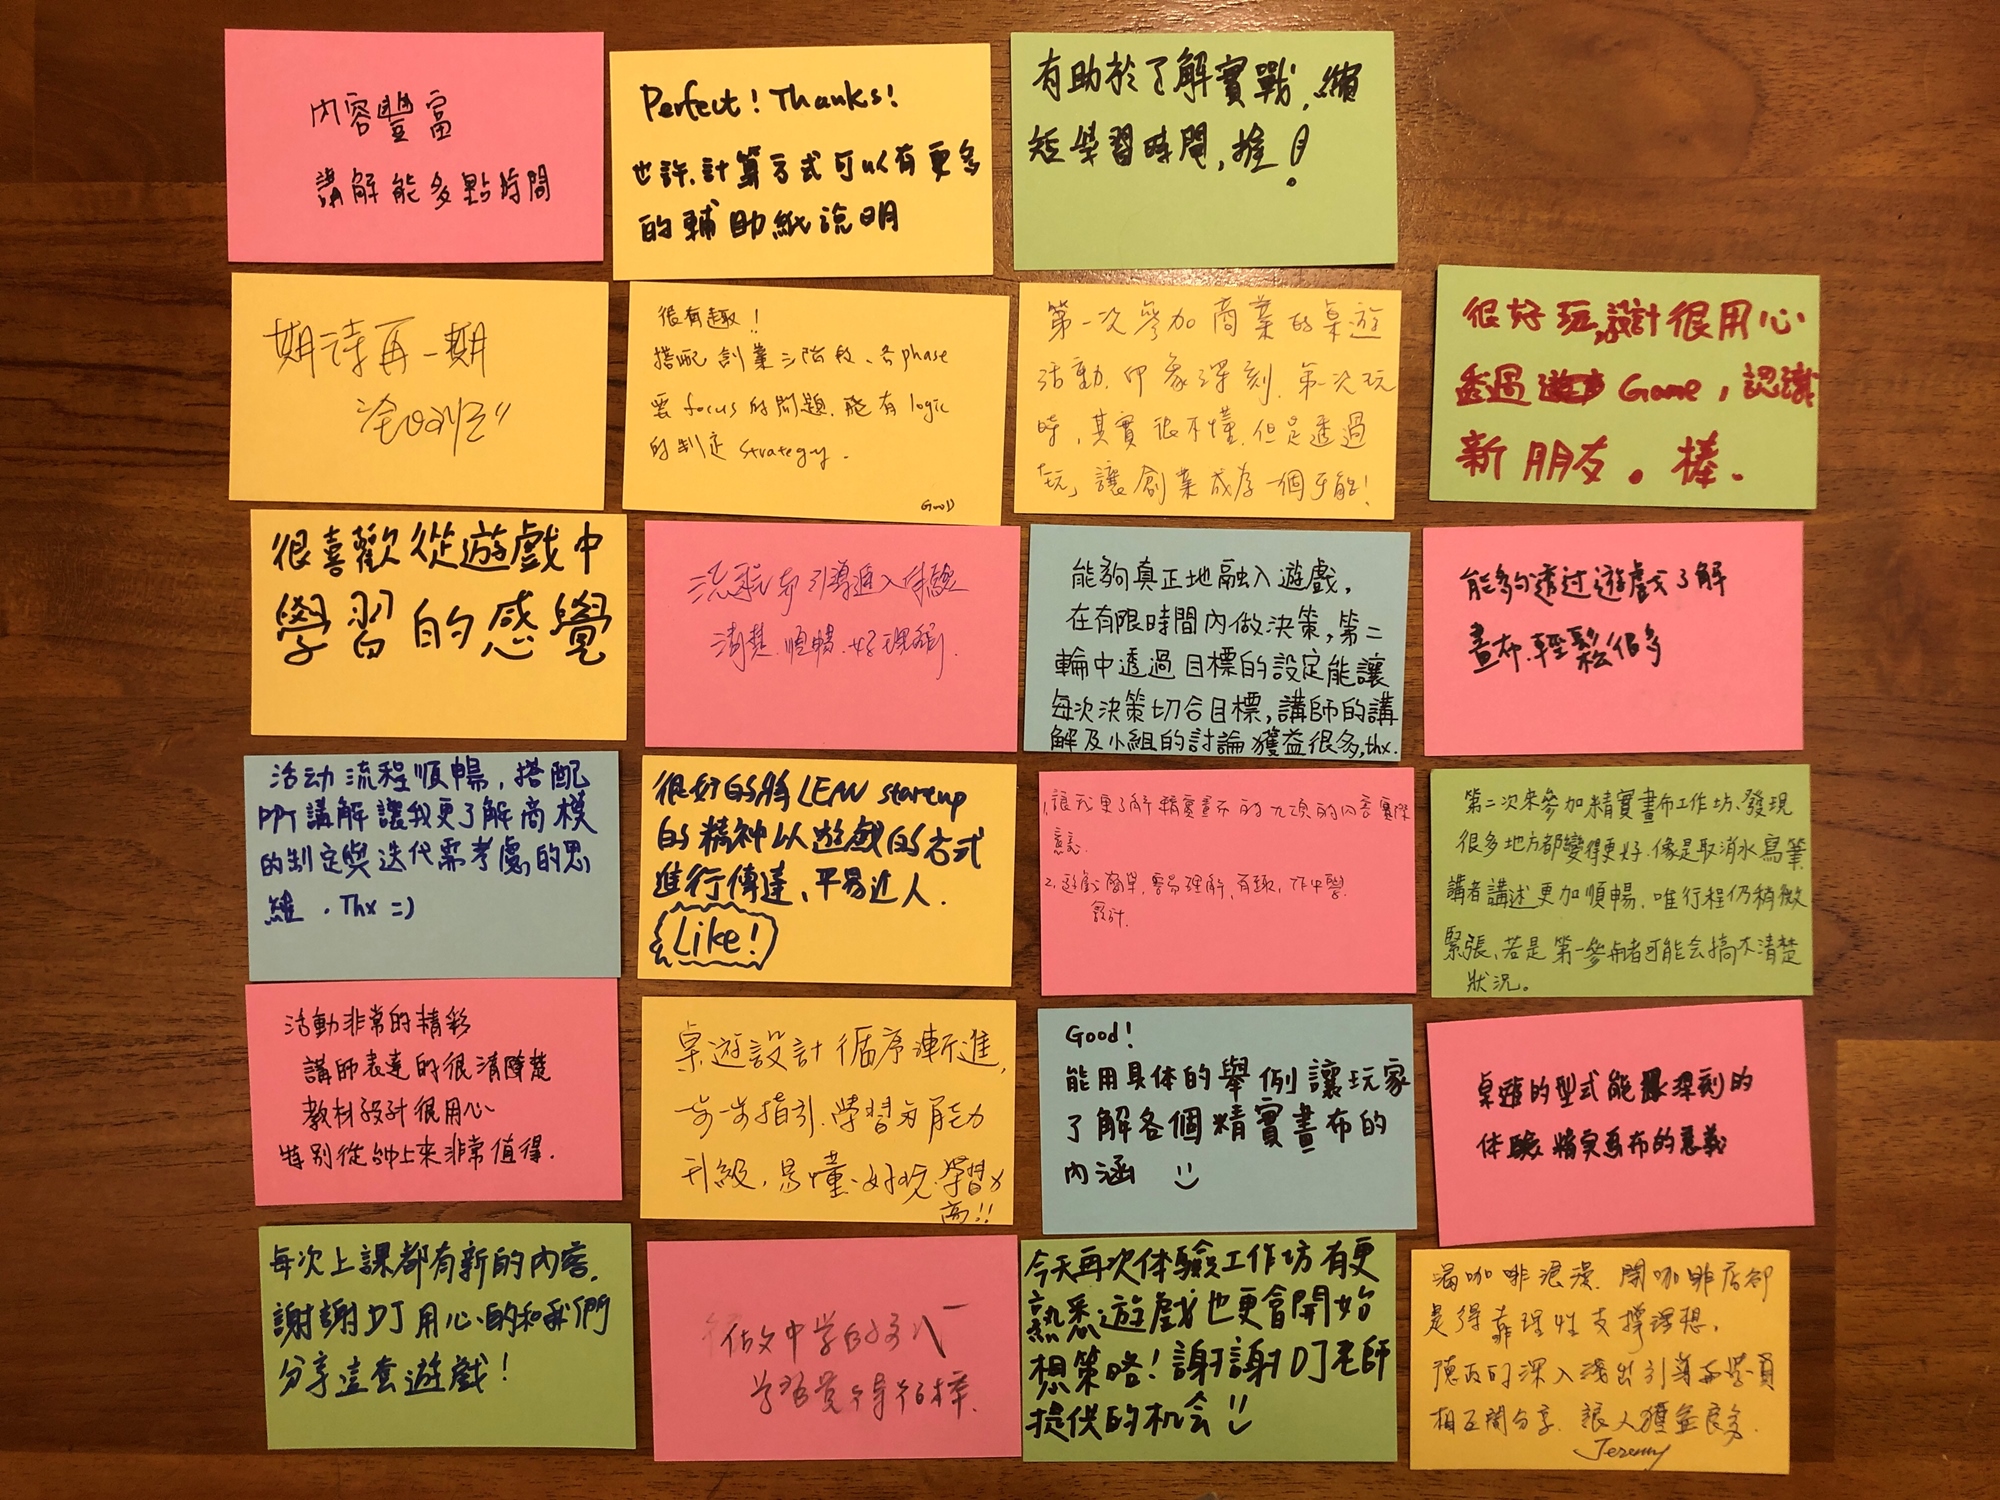 內容豐富
講解能多點時間
Perfect! Thanks!
也許.計算方式可以有更多
的輔助紙說明
有助於了解實戰,縮
短學習時間,握!
期待再一期
很有趣!
搭配創業三階段、各phase
要focus的問題.能有logic
的制定strategy.
GooD
第一次參加商業的桌遊
活動,印象深刻.第一次玩
時,其實很不懂.但是透過
"玩"讓創業成為一個可能!
很好玩,設計很用心
透過 Game,認識
新朋友。棒.
很喜歡從遊戲中
學習的感覺
流程有引導進入体驗
清楚.順暢.好理解.
能夠真正地融入遊戲,
在有限時間內做決策,第二
輪中透過目標的設定能讓
每次決策切合目標,講師的講
解及小組的討論獲益很多,thx.
能夠透过遊戲了解
畫布.輕鬆很多
活动流程順暢,搭配
PPT講解讓我更了解商模
的制定與迭代需考慮的思
維.Thx =)
很好的將LEAN startup
的精神以遊戲的方式
進行傳達、平易近人.
Like!
1.讓我更了解精實畫布的九項的內容實際
意義.
2.遊戲簡單,容易理解,有趣,作中學
設計.
第二次來參加精實畫布工作坊、發現
很多地方都變得更好.像是取消水寫筆
講者講述更加順暢.唯行程仍稍微
緊張,若是第一參與者可能会搞不清楚
狀況。
活動非常的精彩
講師表達的很清楚
教材設計很用心
特別從 上來非常值得.
桌遊設計循序漸進,
一步一步指引.學習力能力
升級,易懂、好玩、學習
高!!
Good!
能用具体的舉例讓玩家
了解各個精實畫布的
內涵
桌遊的型式能 深刻的
体驗精實畫布的意義
每次上課都有新的內容.
謝謝DJ用心的和我們
分享這套遊戲!
做中学的方式
学習覺得很棒.
今天再次体驗工作坊有更
熟悉遊戲也更會開始
想策略!謝謝DJ老師
提供的机会
滿咖啡浪漫.開咖啡店卻
是得靠理性支撐理想.
德 的深入淺出引導與學員
相互間分享.讓人獲益良多.
Jeremy